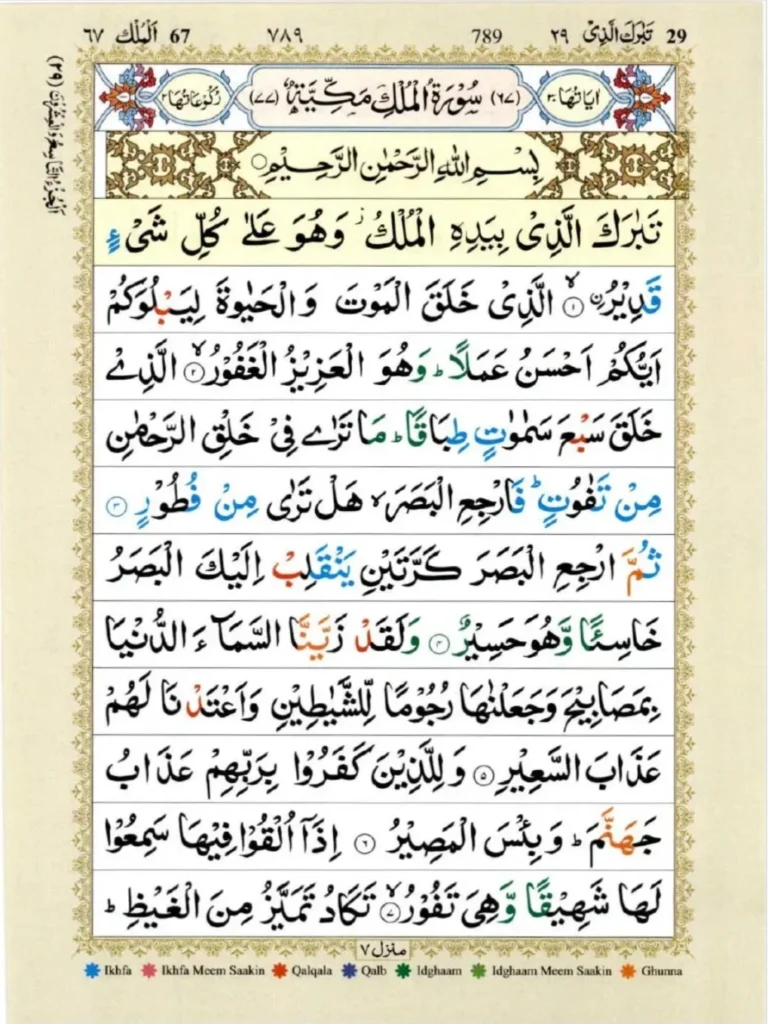 29 تَبٰرَكَ الَّذِىْ ٢٩ 789 ٧٨٩ 67 اَلْمُلْك ٦٧
اٰيَاتُهَا ٣٠ (٦٧) سُوْرَةُ الْمُلْكِ مَكِّيَّةٌ (٧٧) رُكُوْعَاتُهَا ٢
بِسْمِ اللّٰهِ الرَّحْمٰنِ الرَّحِيْمِ
تَبٰرَكَ الَّذِىْ بِيَدِهِ الْمُلْكُ ز وَهُوَ عَلٰى كُلِّ شَىْءٍ
قَدِيْرُۨ ۙ﴿١﴾ الَّذِىْ خَلَقَ الْمَوْتَ وَالْحَيٰوةَ لِيَبْلُوَكُمْ
اَيُّكُمْ اَحْسَنُ عَمَلًا ؕ وَهُوَ الْعَزِيْزُ الْغَفُوْرُ ۙ﴿٢﴾ الَّذِىْ
خَلَقَ سَبْعَ سَمٰوٰتٍ طِبَاقًا ؕ مَا تَرٰى فِىْ خَلْقِ الرَّحْمٰنِ
مِنْ تَفٰوُتٍ ؕ فَارْجِعِ الْبَصَرَ ۙ هَلْ تَرٰى مِنْ فُطُوْرٍ ﴿٣﴾
ثُمَّ ارْجِعِ الْبَصَرَ كَرَّتَيْنِ يَنْقَلِبْ اِلَيْكَ الْبَصَرُ
خَاسِئًا وَّهُوَ حَسِيْرٌ ﴿٤﴾ وَلَقَدْ زَيَّنَّا السَّمَآءَ الدُّنْيَا
بِمَصَابِيْحَ وَجَعَلْنٰهَا رُجُوْمًا لِّلشَّيٰطِيْنِ وَاَعْتَدْنَا لَهُمْ
عَذَابَ السَّعِيْرِ ﴿٥﴾ وَلِلَّذِيْنَ كَفَرُوْا بِرَبِّهِمْ عَذَابُ
جَهَنَّمَ ؕ وَبِئْسَ الْمَصِيْرُ ﴿٦﴾ اِذَآ اُلْقُوْا فِيْهَا سَمِعُوْا
لَهَا شَهِيْقًا وَّهِىَ تَفُوْرُ ۙ﴿٧﴾ تَكَادُ تَمَيَّزُ مِنَ الْغَيْظِ ؕ
منزل ٧
Ikhfa Ikhfa Meem Saakin Qalqala Qalb Idghaam Idghaam Meem Saakin Ghunna
اَلْجُزْءُ التَّاسِعُ وَالْعِشْرُوْنَ (٢٩)